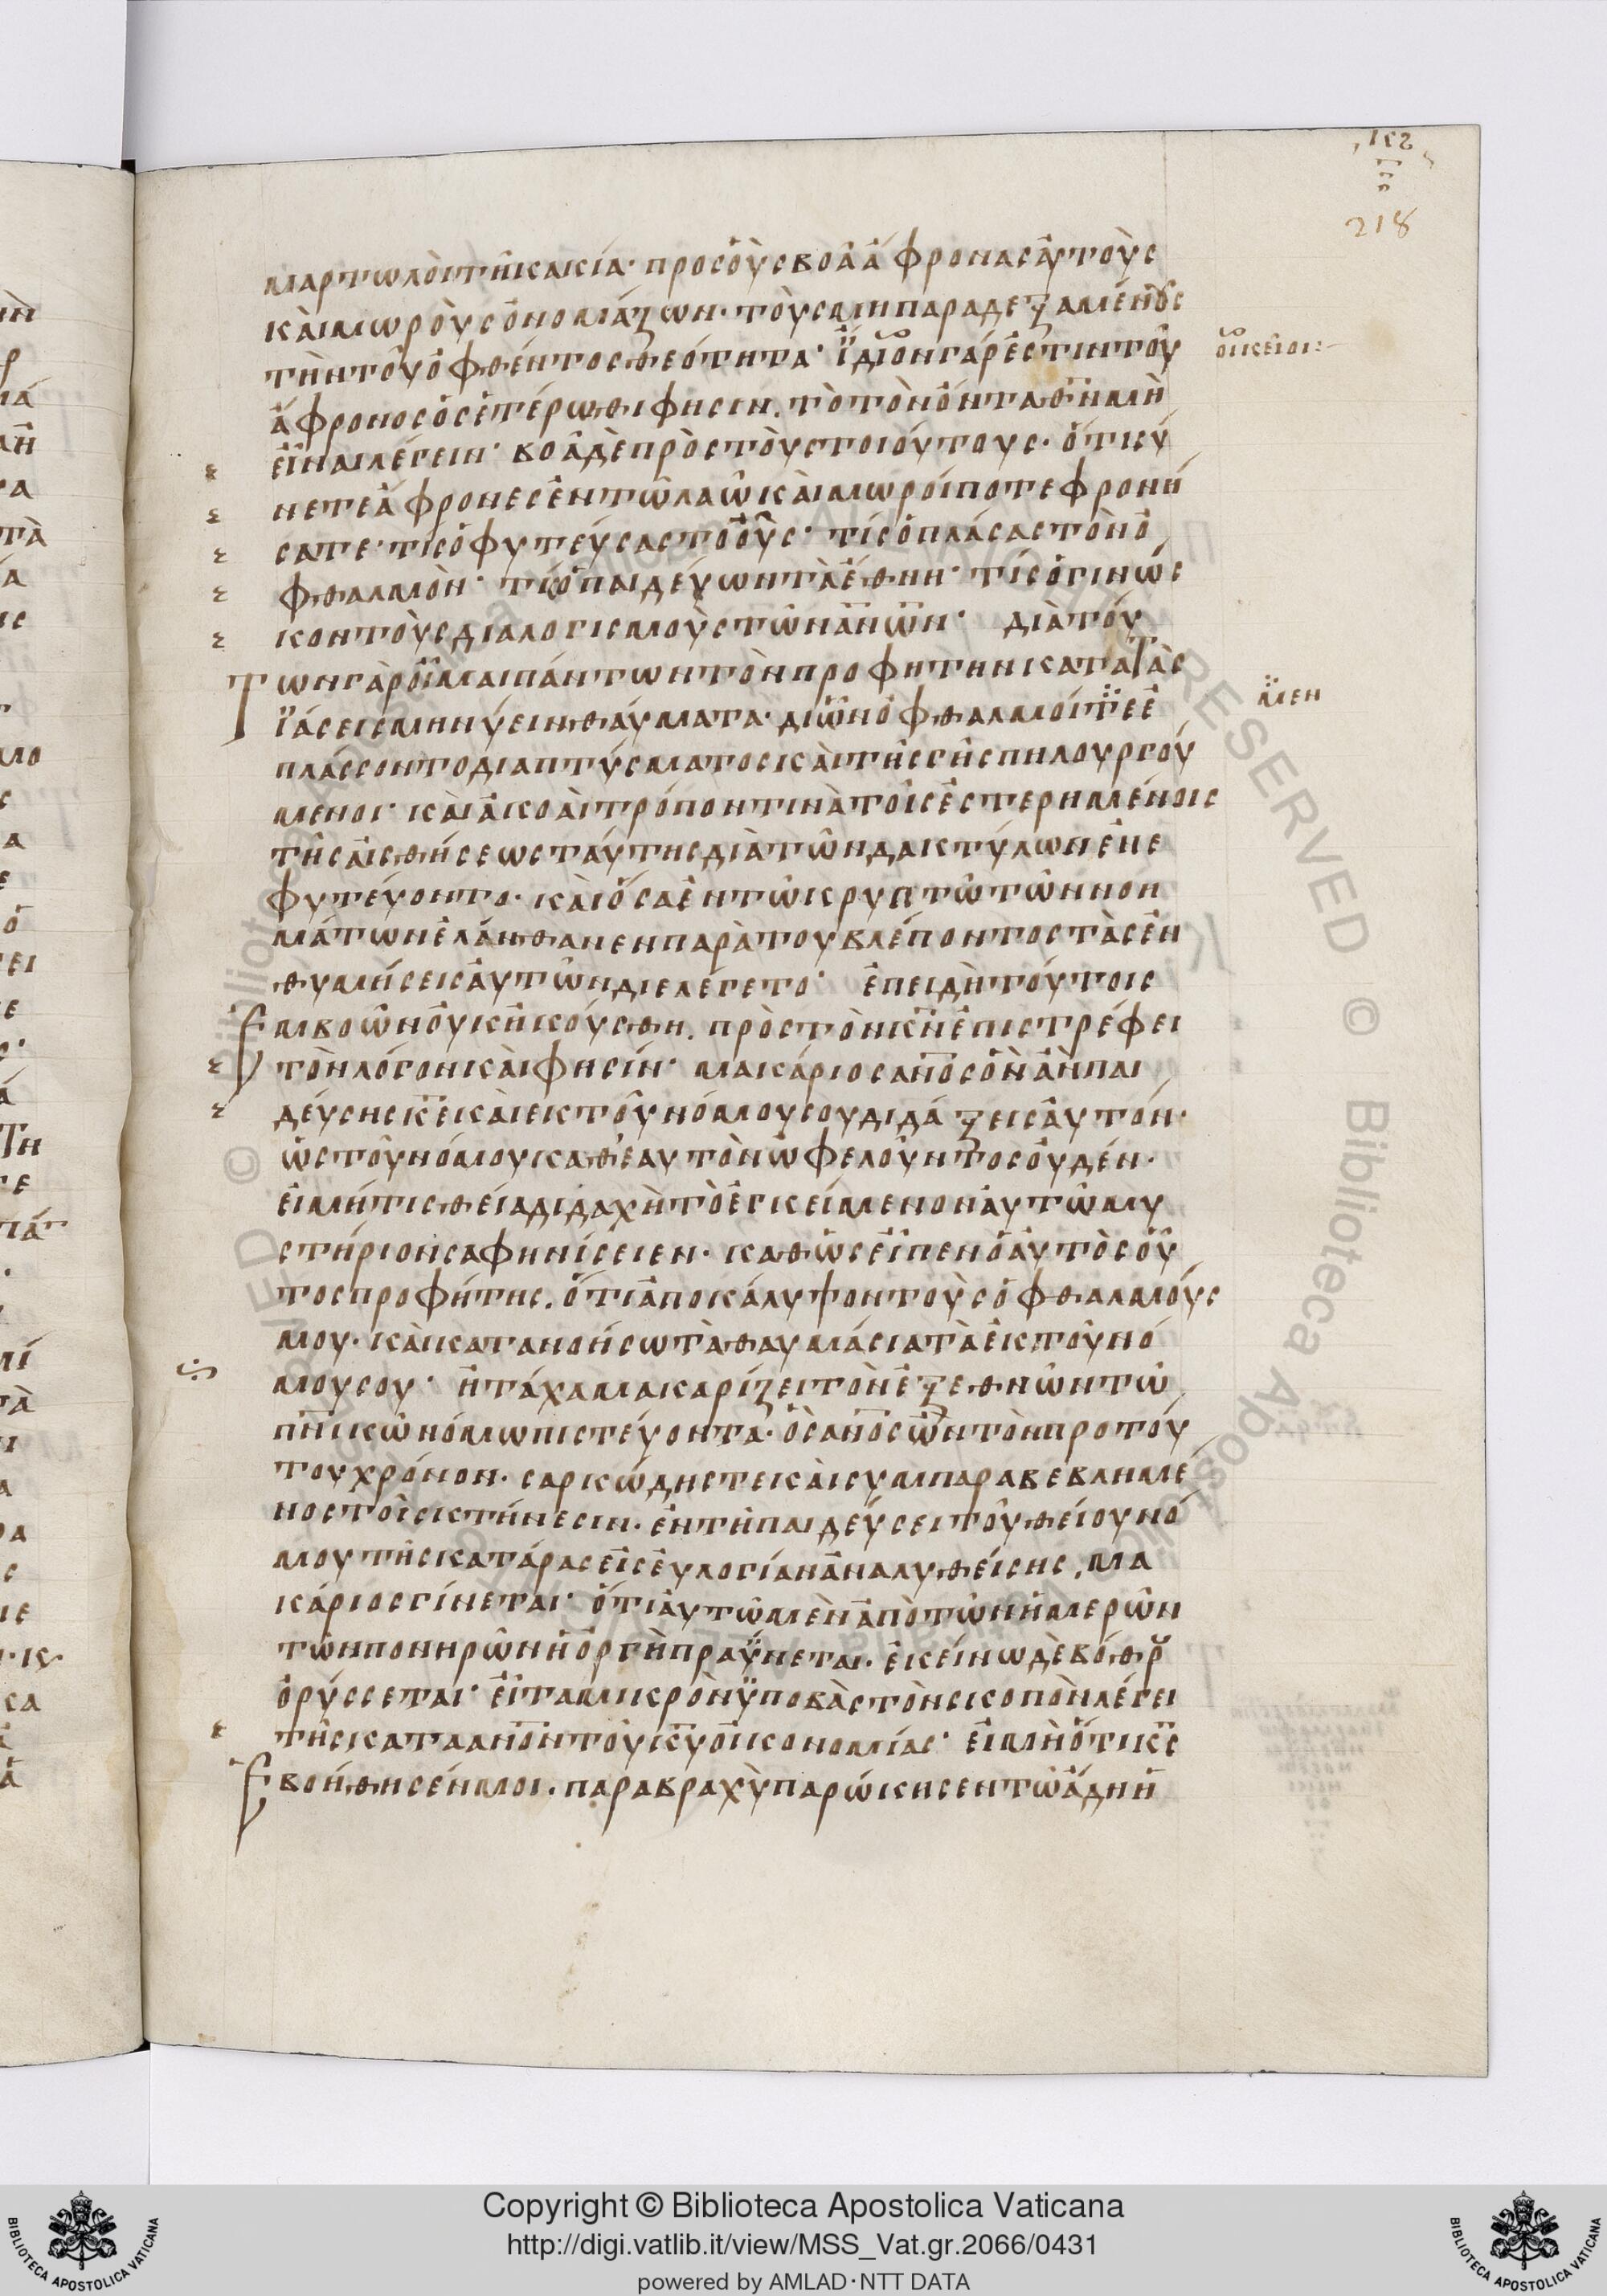 218
μαρτωλοὶ τῆ κακία· πρὸς οὓς βοᾶ ἄφρονας αὐτοὺς
καὶ μωροὺς ὀνομάζων· τοὺς μὴ παραδεξαμένους
τὴν τοῦ ὀφθέντος θεότητα· ἴδιον γάρ ἐστιν τοῦ
οἰκεῖον:
ἄφρονος ὡς ἑτέρωθι φησιν. τὸ τὸν ὄντα θν̅ μὴ
εἶναι λέγειν· βοᾶ δὲ πρὸς τοὺς τοιούτους· ὅτι σύ
νετε ἄφρονες ἐν τῶ λαῶ καὶ μωροί ποτε φρονή
σατε· τισ ὁ φυτεύσας τὸ οὖς· τίς ὁ πλάσας τὸν ὀ
φθαλμόν· τίς ὁ παιδεύων τὰ ἔθνη· τίς ὁ γινώσ
κον τοὺς διαλογισμοὺς τῶν αν̅ων̅· διὰ τού
των γὰρ οἶμαι πάντων τὸν προφήτην κατα τὰς
ϊάσεις μηνύειν θαύματα· δι ὧν ὀφθαλμοί τε ἐ
μεν
πλάσσοντο διαπτύσματος καὶ τῆς γῆς πηλουργού
μενοι· καὶ ἀκοαὶ τρόπον τινὰ τοῖς ἐστερημένοις
τῆς αἰσθήσεως ταύτης διὰ τῶν δακτύλων ἐνε
φυτεύοντο· καὶ ὅσα ἐν τῶ κρυπτῶ τῶν νοη
μάτων ἐλάνθανεν παρὰ του βλέποντος τὰς ἐν
θυμήσεις αὐτῶν διελέγετο· ἐπειδὴ τούτοις
ἐμβοῶν οὐκ ἠκούσθη. πρὸς τὸν κν̅ ἐπιστρέφει
τὸν λόγον καὶ φησίν· μακάριος αν̅ος ὃν ἂν παι
δεύσης κε̅ καὶ εκ τοῦ νόμου σου διδάξεις αὐτόν·
ὡς τοῦ νόμου καθ' εαυτὸν ὠφελοῦντος οὐδέν·
εἰ μή τις θεία διδαχὴ τὸ ἐγκείμενον αὐτῶ μυ
στήριον σαφηνίσειεν· καθὼς εἶπεν ὁ αὐτὸς οὗ
τος προφήτης. ὅτι ἀποκάλυψον τοὺς ὀφθαλμούς
μου· καὶ κατανοήσω τὰ θαυμάσια τὰ ἐκ τοῦ νό
μου σου· ἢ τάχα μακαρίζει τὸν ἐξ ἐθνῶν τῶ
πν̅ικῶ νόμω πιστεύοντα· ὃς αν̅ος ὢν τὸν προ τού
του χρόνον· σαρκώδης τε καὶ συμπαραβεβλημέ
νος τοῖς κτήνεσιν· ἐν τῆ παιδεύσει τοῦ θείου νό
μου τῆς κατάρας εἰς εὐλογίαν ἀναλυθείσης, μα
κάριος γίνεται· ὅτι αὐτῶ μὲν ἀπὸ τῶν ἡμερῶν
τῶν πονηρῶν ἡ ὀργὴ πραΰνεται· ἐκείνω δὲ βόθρ
ὀρύσσεται· εἶτα μικρὸν ϋποβὰς τὸν σκοπὸν λέγει
τῆς κατα αν̅ον̅ τοῦ κυ̅ οἰκονομίας· εἰ μὴ ὅτι κς̅
ἐβοήθησέν μοι. παρα βραχὺ παρώκησεν τῶ ἅδη ἡ
Copyright © Biblioteca Apostolica Vaticana
http://digi.vatlib.it/view/MSS_Vat.gr.2066/0431
powered by AMLAD·NTT DATA